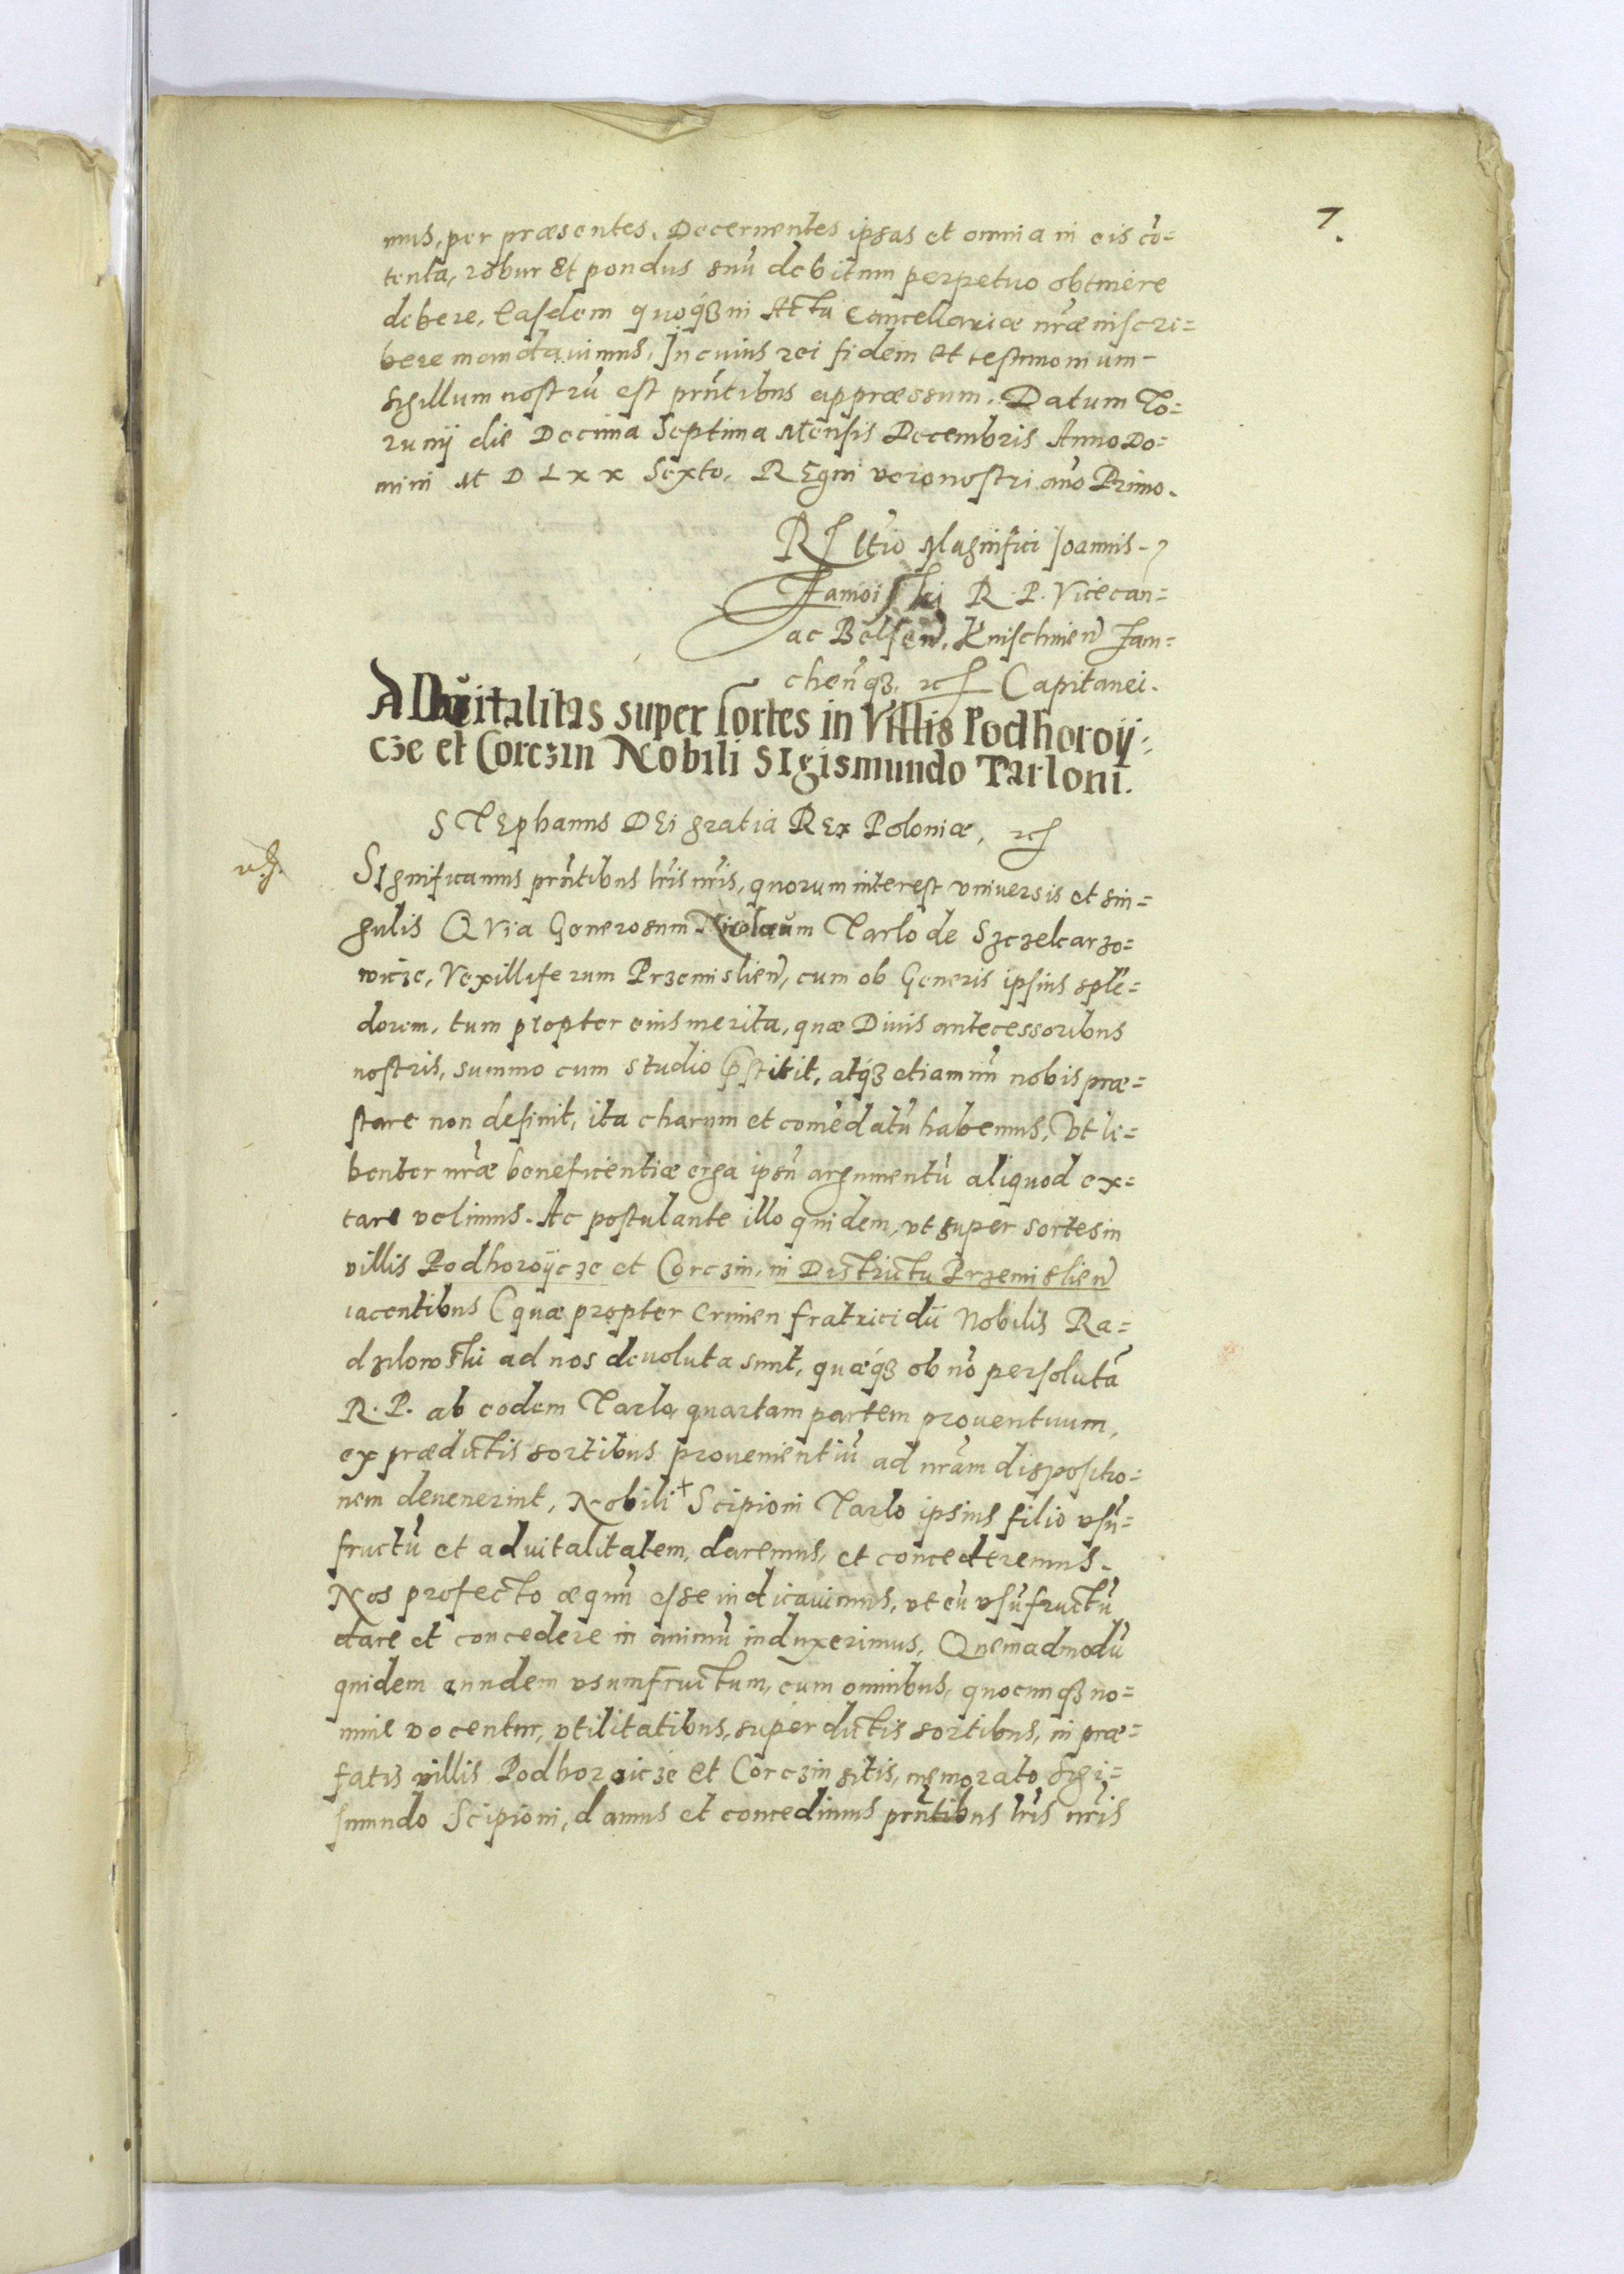 7.
mus, per præsentes. Decernentes ipsas et omnia in eis cō=
tenta, robur Et pondus suū debitum perpetuo obtinere
debere, Easdem quoq́ꝫ in Acta Cancellariæ nr̃æ inscri=
bere mandauimus. In cuius rei fidem et testimonium–
Sigillum nostrū est pr̃ntibus appræssum. Datum To=
runij die Decima Septima Mensis Decembris Anno Do=
mini M D L x x Sexto. REgni vero nostri año Primo.
Magnifici Joannis
Zamoiski R. P. Vicecan=
ac Belsen̄, Knischinen̄ Zam=
chen̄qꝫ, Capitanei.
ADuitalitas super sortes in Villis Podhoroÿ=
cze et Corczin Nobili SIgismundo Tarloni.
STEphanus DEi gratia REx Poloniæ,
SIgnificamus pr̃ntibus lr̃is nr̃is, quorum interest vniuersis et sin=
gulis QVia Generosum Nicolaum Tarlo de Szczekarzo=
wicze, Vexilliferum Przemislien̄, cum ob Generis ipsius splē=
dorem, tum propter eius merita, quæ Diuis antecessoribus
nostris, summo cum studio p̃stitit, atq́ꝫ etiamnū nobis præ=
stare non desinit, ita charum et comēdatū habemus, Vt li=
benter nr̃æ beneficentiæ erga ipsū argumentū aliquod ex=
tare velimus. Ac postulante illo quidem, vt super sortes in
villis Podhoroÿcze et Corczin, in Districtu Przemislien̄
iacentibus (quæ propter crimen fratricidū Nobilis Ra=
dzilowski ad nos deuoluta sunt, quæq́ꝫ ob nō persolutā
R. P. ab eodem Tarlo, quartam partem prouentuum,
ex prædictis sortibus prouenientiū ad nr̃am dispositio=
nem deuenerint, Nobili + Scipioni Tarlo ipsius filio vsū=
fructū et aduitalitatem, daremus, et concederemus.
Nos profecto æquū esse iudicauimus, vt eū vsūfructū
dare et concedere in animū induxerimus, Quemadmodū
quidem eundem vsumfructum, cum omnibus, quocunqꝫ no=
mine vocentur, vtilitatibus, super dictis sortibus, in præ=
fatis villis Podhoroicze et Corczin sitis, memorato Sigi=
smundo Scipioni, damus et concedimus pr̃ntibus lr̃is nr̃is